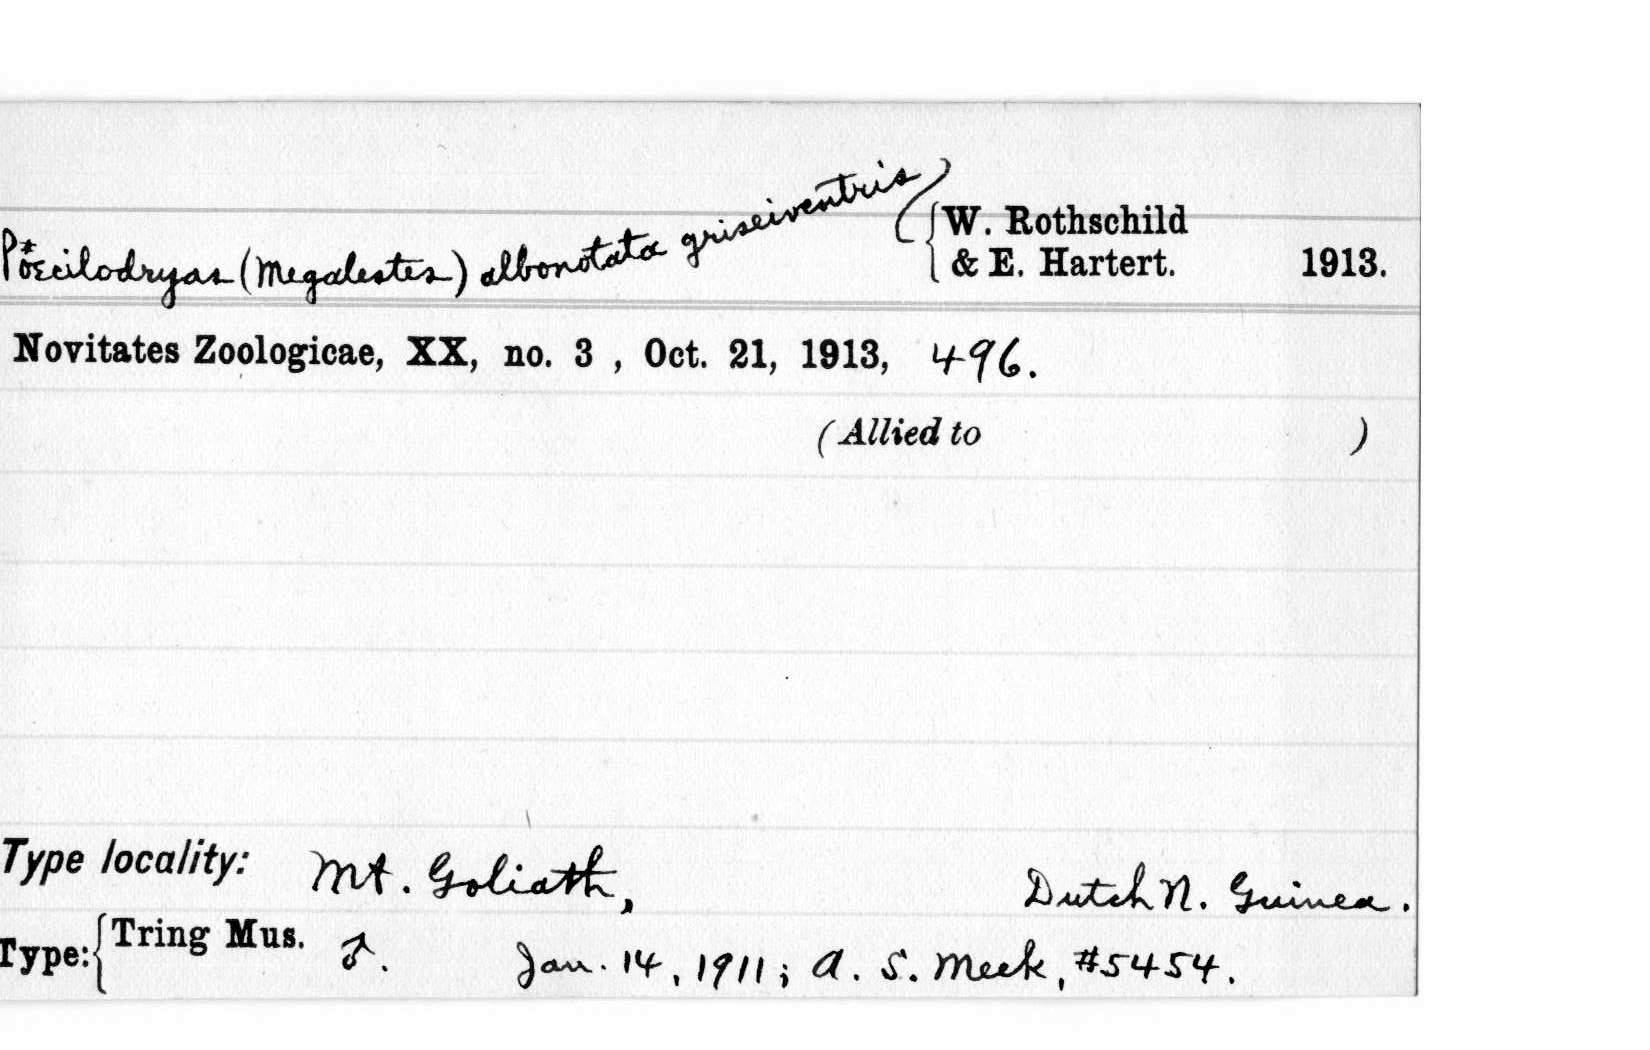 Poecilodryas (Megalestes) albonotata griseiventris
W. Rothschild
& E. Hartert. 1913.
Novitates Zoologicae, XX, no. 3 , Oct. 21, 1913, 496.
(Allied to )
Type locality: Mt. Goliath, Dutch N. Guinea.
Type: Tring Mus. ♂. Jan. 14, 1911; A. S. Meek, #5454.